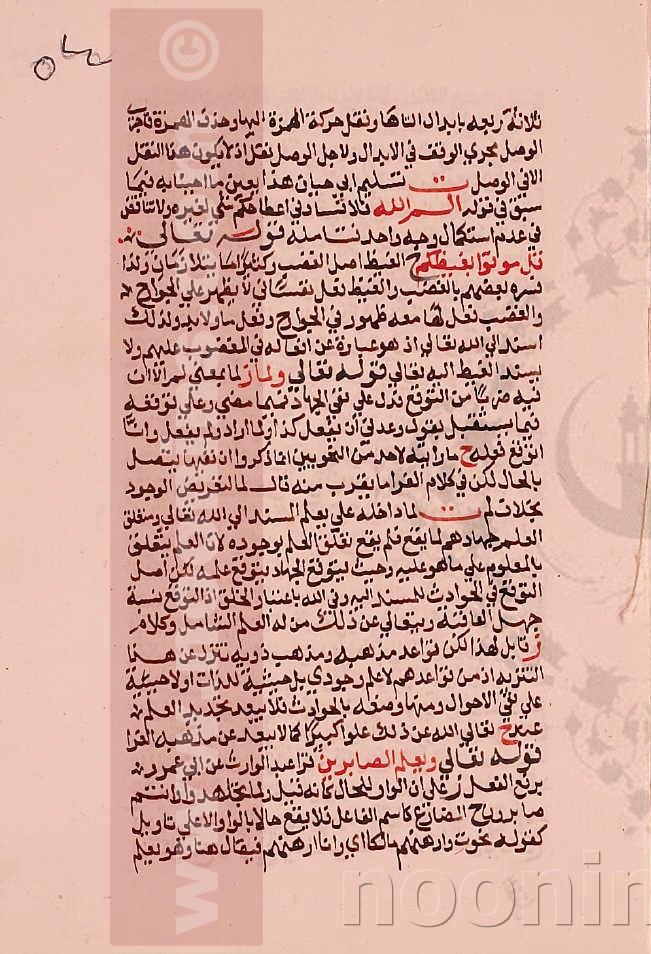 ثلاثة ربعه بابدال التاها ونقل حركة الهمزة اليها وحذف الهمزة فاجري
الوصل مجري الوقف في الابدال ولاجل الوصل نقل اذ لا يكون هذا النقل
الا في الوصل ت تسليم ابي حيان هذا يعين ما اجبنا به فيما
سبق في قوله الم الله
في عدم استكمال وجه واحد تسامنه قوله تعالي
قل موتوا بغيظكم ح الغيظ اصل الغضب وكثيرا ما يتلازمان ولذا
فسره بعضهم بالغضب والغيظ فعل نفساني لا يظهر علي الجوارح
والغضب فعل لها معه ظهور في الجوارح وفعل ما ولا بد ولذلك
اسند الي الله تعالي اذ هو عبارة عن افعاله في المغضوب عليهم ولا
يسند الغيظ اليه تعالي قوله تعالي ولما ز لما بمعني لم الا ان
فيه ضربا من التوقع فدل علي نفي الجهاد فيما مضي وعلي توقعه
فيما يستقبل يقول وعدني ان يفعل كذا ولما اراد ولم يفعل وانا
اتوقع فعله ح ما رايته لاحد من النحويين انما ذكروا ان نفيها يتصل
بالحال لكن في كلام الفرا ما يقرب منه قال لما لتعريض الوجود
بخلاف لم ت لما داخلة علي يعلم المسند الي الله تعالي ومتعلق
العلم جهادهم لما يقع فلم يقع تعلق العلم بوجوده لان العلم يتعلق
بالمعلوم علي ما هو عليه وحيث يتوقع الجهاد يتوقع علمه لكن اصل
التوقع في الحوادث للمسند اليه وفي الله باعتبار الخلق اذ التوقع نسبة
جهل العاقبة وتعالي عن ذلك من له العلم الشامل وكلام
ز قابل لهذا لكن قواعد مذهبه ومذهب ذويه تنزل عن هذا
التنزيه اذ من قواعدهم لا علم وجودي بل حيثية للذات اولا حيثية
علي نفي الاحوال ومنها وصفه بالحوادث فلا يبعد تجديد العلم
عند ح تعالي الله عن ذلك علوا كبيرا كما لا يبعد عن مذهبه الفرا
قوله تعالي ويعلم الصابرين قرا عبد الوارث عن ابي عمرو
برفع الفعل ز علي ان الواو للحال كانه قيل ولما تجاهدوا وانتم
صابرون ح المضارع كاسم الفاعل فلا يقع حالا بالواو الا علي تاويل
كقوله نجوت وارهنهم مالكا اي وانا ارهنهم فيقال هنا وهو يعلم
noonin